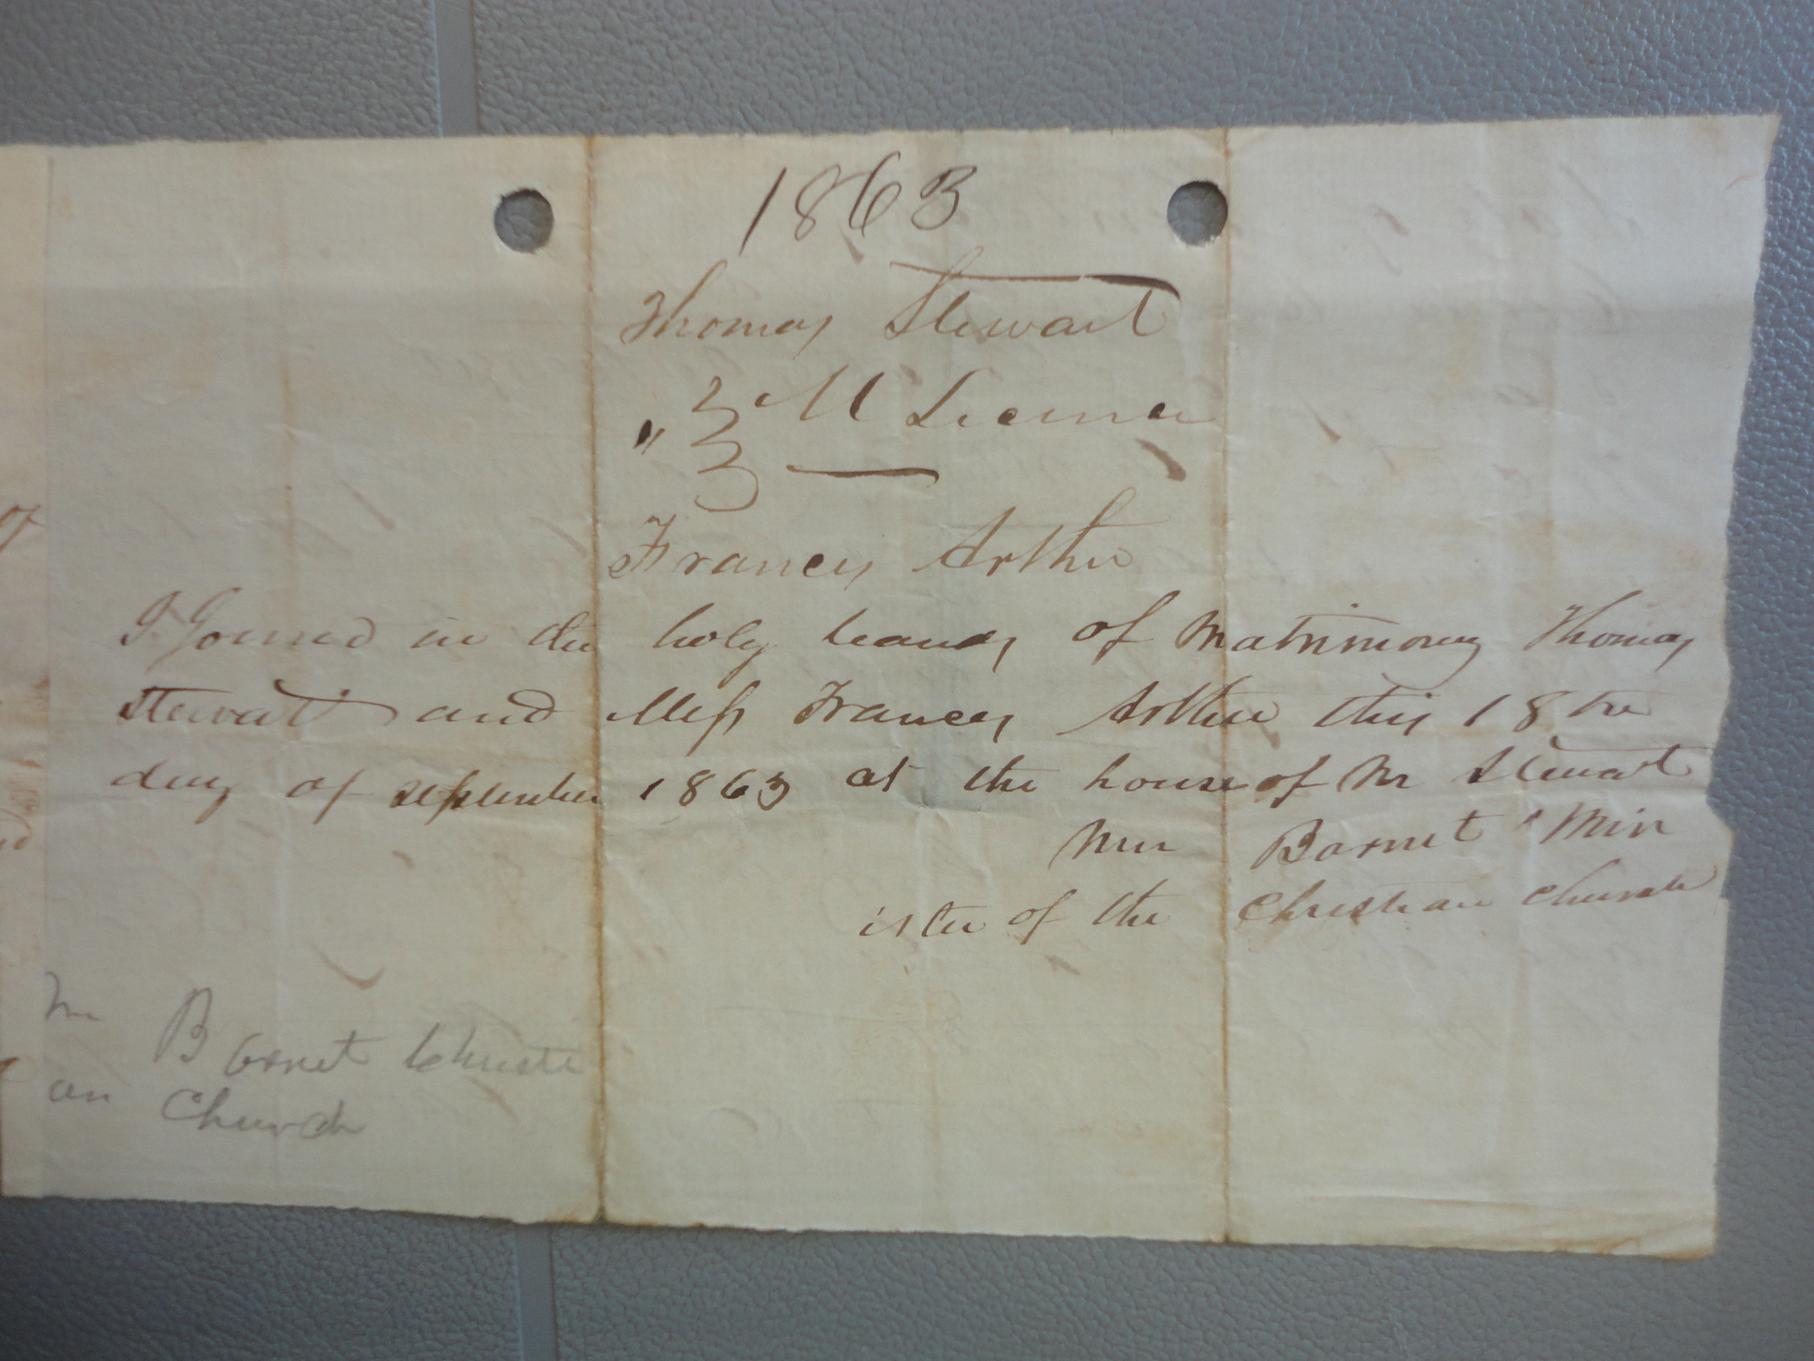 1863
Thomas Stewart
" } M Licence
Frances Arthur
I Joined in the holy bands of Matrimony Thomas
Stewart and Miss Frances Arthur this 18 the
day of september 1863 at the house of Mr Stewart
Wm Barnet Min
ister of the Christian Church
Wm Barnet Christi
an Church
of